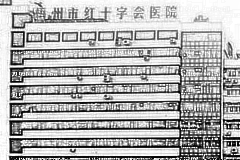 州市红十字会医院